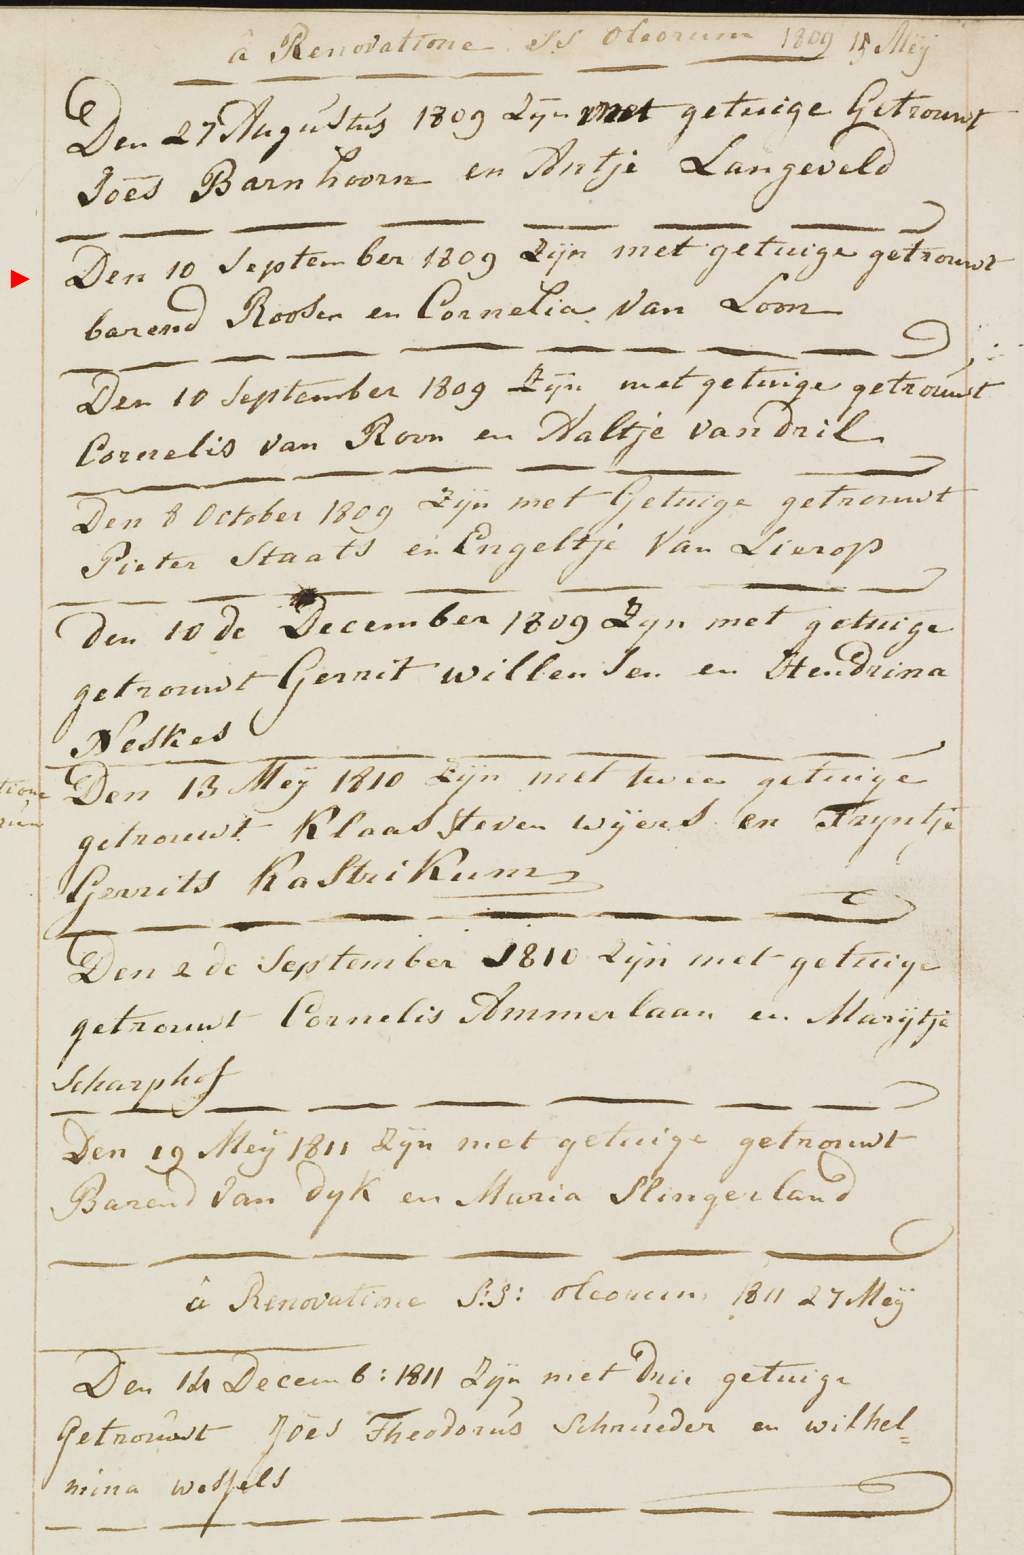 â Renovatione S.S Oleorum 1809 15 Meÿ
Den 27 Augustus 1809 Zÿn met getuige Getrouwt
Joēs Barnhoorn en Antje Langeveld
Den 10 September 1809 Zijn met getuige getrouwt
barend Roosen en Cornelia Van Loon
Den 10 September 1809 Zÿn met getuige getrouwt
Cornelis van Roon en Aaltje van dril
Den 8 October 1809 Zÿn met Getuige getrouwt
Pieter Staats en Engeltje Van Lierop
den 10 de December 1809 Zyn met getuige
getrouwt Gerrit willensen en Hendrina
Neskes
Den 13 Meÿ 1810 Zÿn met twee getuige
getrouwt Klaas Steven wÿers en Tryntje
Gerrits Kastrikum
Den 2 de September 1810 Zÿn met getuige
getrouwt Cornelis Ammerlaan en Marÿtje
Scharphof
Den 19 Meÿ 1811 Zÿn met getuige getrouwt
Barend Van dyk en Maria Slingerland
â Renovatione S:S: Oleorum 1811 27 Meÿ
Den 14 Decemb: 1811 Zÿn met drie getuige
Getrouwt Joēs Theodorus Schrueder en wilhel=
mina wessels